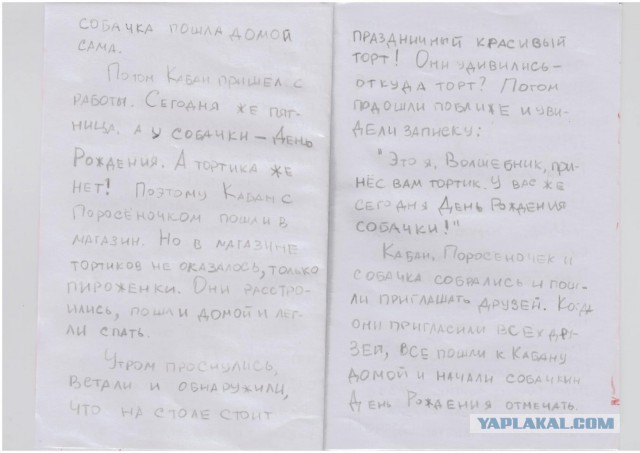 СОБАЧКА ПОШЛА ДОМОЙ
САМА.
ПОТОМ КАБАН ПРИШЕЛ С
РАБОТЫ. СЕГОДНЯ ЖЕ ПЯТ-
НИЦА. А У СОБАЧКИ – ДЕНЬ
РОЖДЕНИЯ. А ТОРТИКА ЖЕ
НЕТ! ПОЭТОМУ КАБАН С
ПОРОСЁНОЧКОМ ПОШЛИ В
МАГАЗИН. НО В МАГАЗИНЕ
ТОРТИКОВ НЕ ОКАЗАЛОСЬ, ТОЛЬКО
ПИРОЖЕНКИ. ОНИ РАССТРО-
ИЛИСЬ, ПОШЛИ ДОМОЙ И ЛЕГ-
ЛИ СПАТЬ.
УТРОМ ПРОСНУЛИСЬ,
ВСТАЛИ И ОБНАРУЖИЛИ,
ЧТО НА СТОЛЕ СТОИТ
ПРАЗДНИЧНЫЙ КРАСИВЫЙ
ТОРТ! ОНИ УДИВИЛИСЬ –
ОТКУДА ТОРТ? ПОТОМ
ПОДОШЛИ ПОБЛИЖЕ И УВИ-
ДЕЛИ ЗАПИСКУ:
"ЭТО Я, ВОЛШЕБНИК, ПРИ-
НЁС ВАМ ТОРТИК. У ВАС ЖЕ
СЕГОДНЯ ДЕНЬ РОЖДЕНИЯ
СОБАЧКИ!"
КАБАН, ПОРОСЕНОЧЕК И
СОБАЧКА СОБРАЛИСЬ И ПОШ-
ЛИ ПРИГЛАШАТЬ ДРУЗЕЙ. КОГДА
ОНИ ПРИГЛАСИЛИ ВСЕХ ДРУ-
ЗЕЙ, ВСЕ ПОШЛИ К КАБАНУ
ДОМОЙ И НАЧАЛИ СОБАЧКИН
ДЕНЬ РОЖДЕНИЯ ОТМЕЧАТЬ.
YAPLAKAL.COM